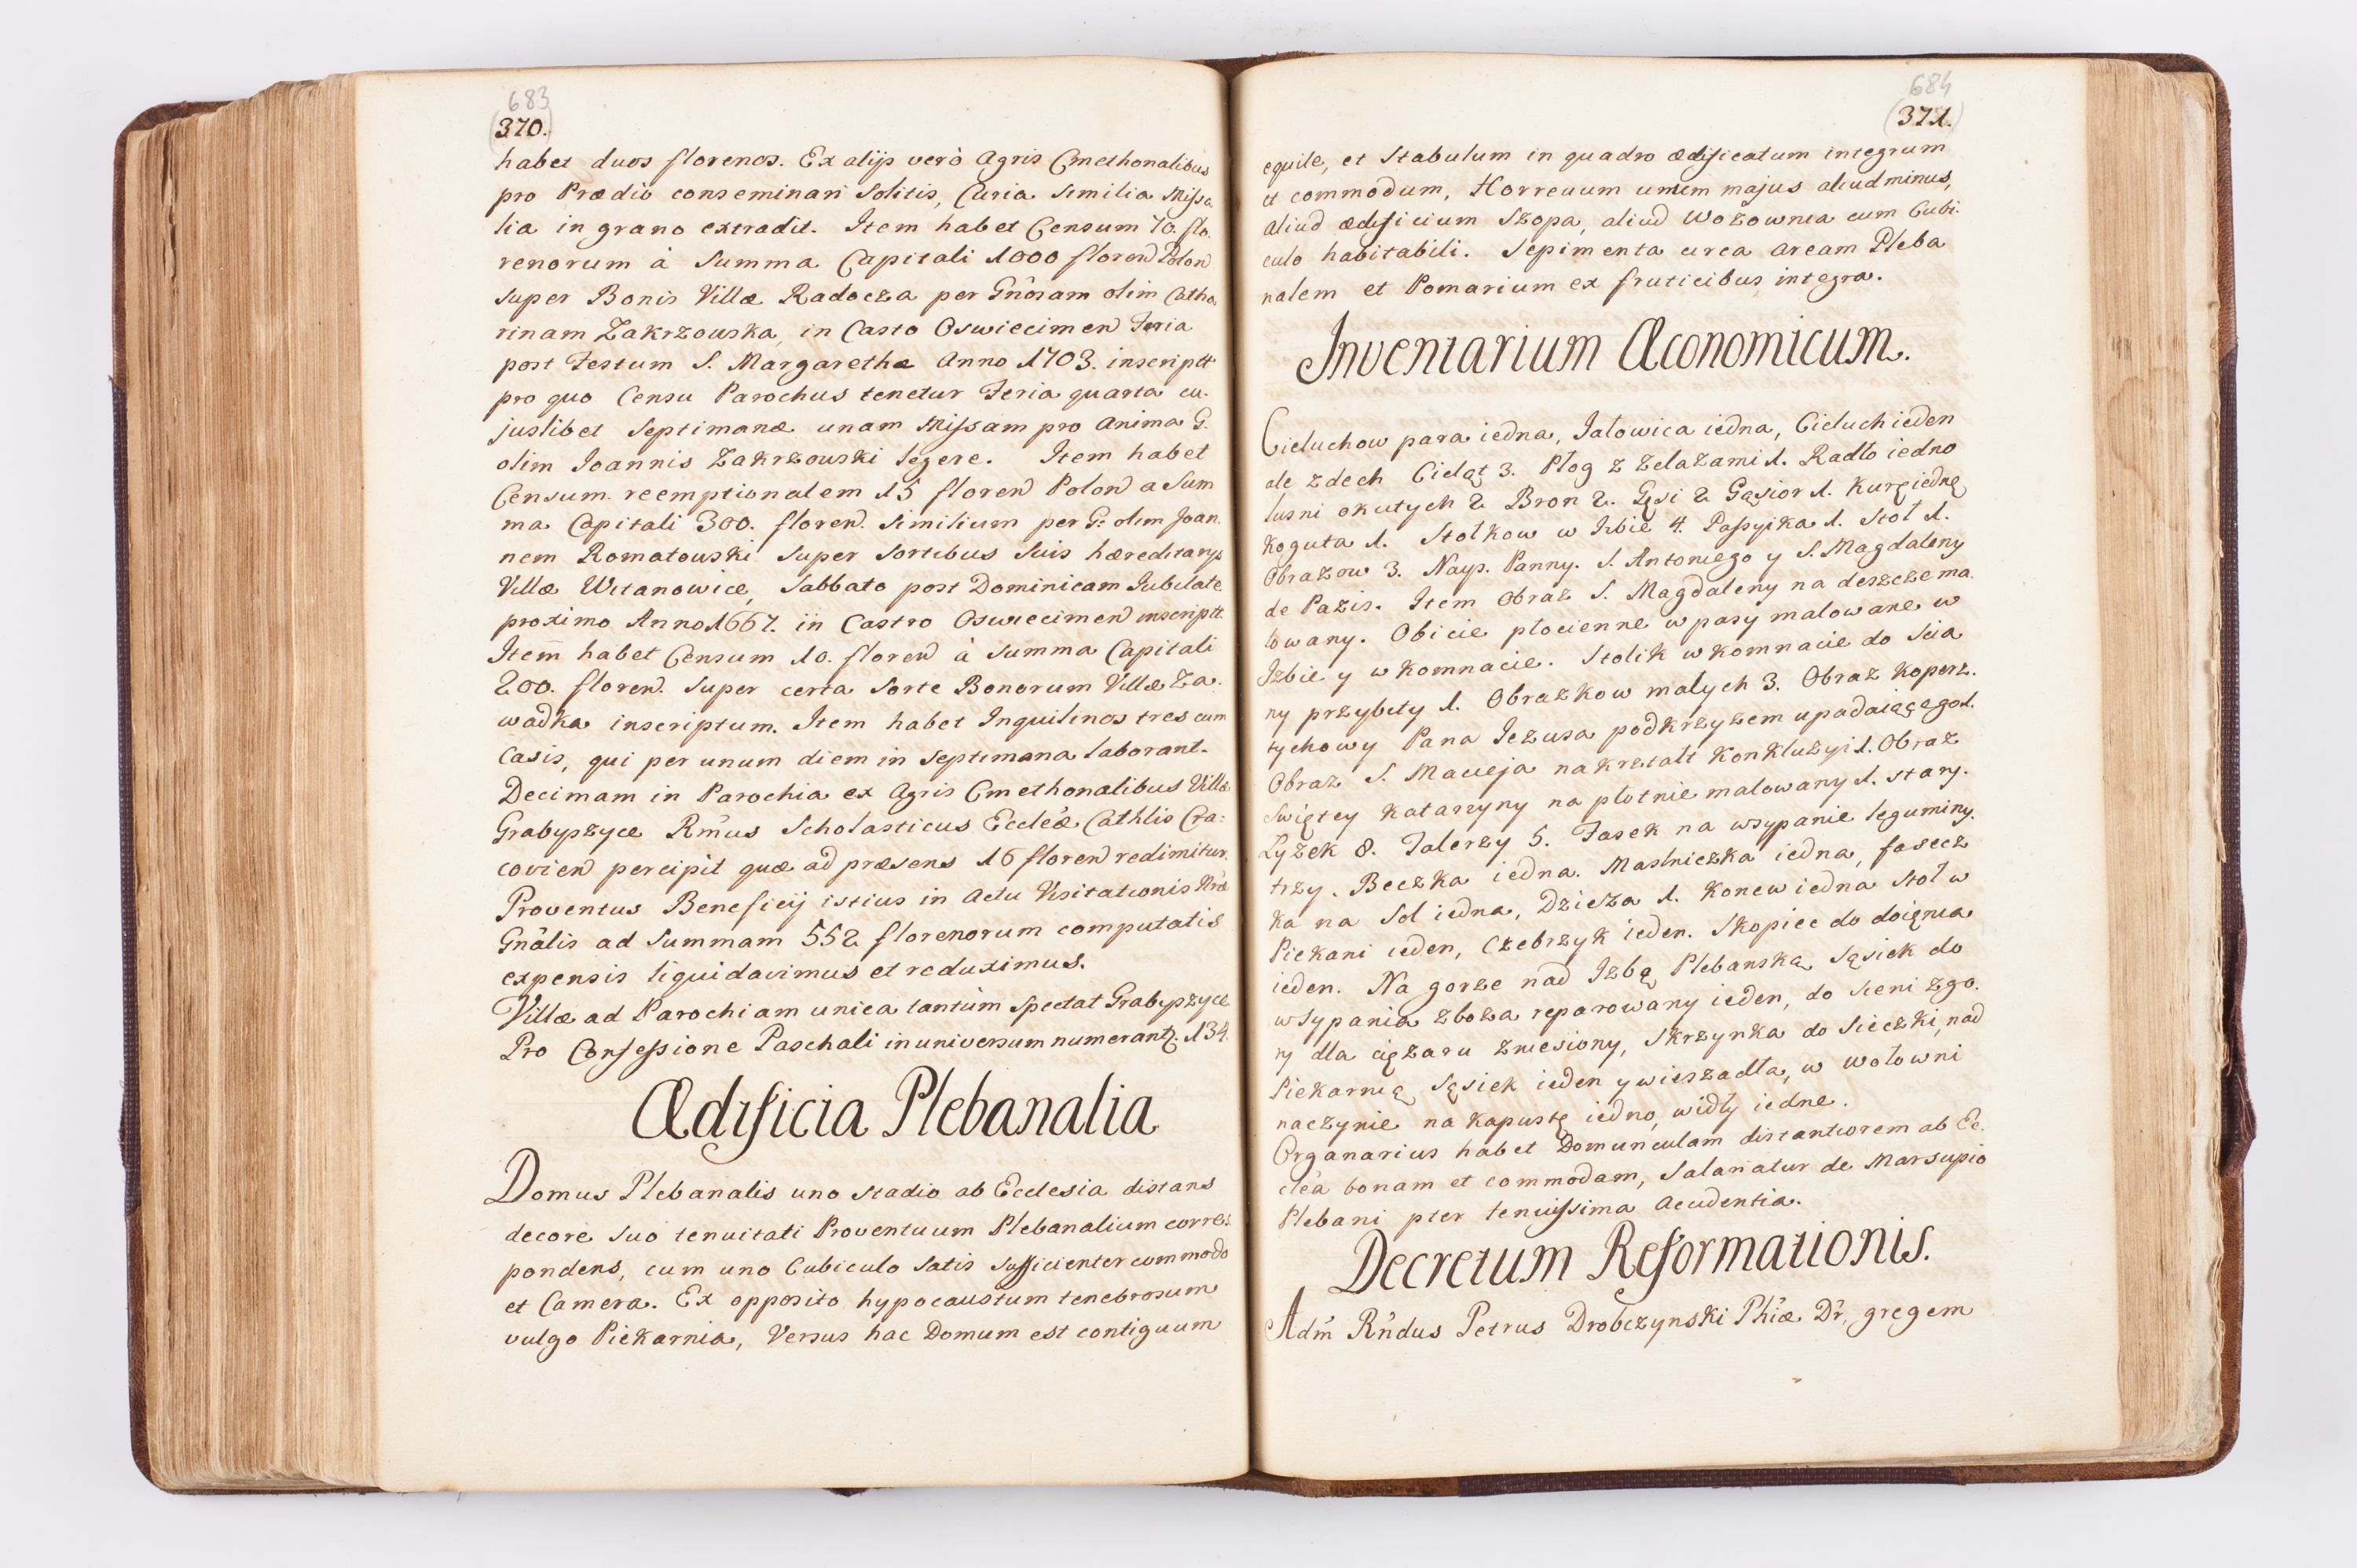 683
370.
habet duos florenos. Ex alijs verò Agris Cmethonalibus
pro Prædio conseminari Solitis, Curia Similia Missa
lia in grano extradit. Item habet Censum 70. flo.
renorum à Summa Capitali 1000 floren Polon
super Bonis Villæ Radocza per Gnosam olim Catha
rinam Zakrzouska, in Casto Oswiecimen Feria
post Festum S. Margarethæ Anno 1703. inscriptt
pro quo Censu Parochus tenetur Feria quarta cu.
juslibet Septimanæ unam Missam pro Anima G.
olim Joannis Zakrzouski legere. Item habet
Censum reemptionalem 15 floren Polon a Sum
ma Capitali 300. floren. Similium per G: olim Joan.
nem Romatouski Super Sortibus Suis hæreditarijs
Villæ Witanowice, Sabbato post Dominicam Jubilate
proximo Anno 1667. in Castro Oswiecimen inscriptt.
Item habet Censum 10. floren à Summa Capitali
200. floren. Super certa Sorte Bonorum Villæ Za.
wadka inscriptum. Item habet Inquilinos tres cum
Casis, qui per unum diem in Septimana laborant.
Decimam in Parochia ex Agris Cmethonalibus Villæ
Grabyszyce Rm̃us Scholasticus Eccleæ Cathlis Cra:
covien percipit quæ ad præsens 16 floren redimitur.
Proventus Beneficij istius in Actu Visitationis Nræ
Gnâlis ad Summam 552 florenorum computatis
expensis liquidavimus et reduximus.
Villæ ad Parochiam unica tantùm Spectat Grabyszyce
Pro Confessione Paschali in universum numerantz. 134.
Ædificia Plebanalia
Domus Plebanalis uno Stadio ab Ecclesia distans
decore Suo tenuitati Proventuum Plebanalium corres
pondens, cum uno Cubiculo Satis Sufficienter commodo
et Camera. Ex opposito hypocaustum tenebrosum
vulgo Piekarnia, Versus hac Domum est contiguum
684
371.
equile, et Stabulum in quadro ædificatum integrum
et commodum, Horreuum unum majus aliud minus,
aliud ædificium Szopa, aliud Wozownia cum Cubi.
culo habitabili. Sepimenta circa aream Pleba
nalem et Pomarium ex fruticibus integra.
Inventarium Æconomicum.
Cieluchow para iedna, Jałowica iedna, Cieluch ieden
ale zdech Cieląt 3. Płog z Zelazami 1. Radło iedno
lusni okutych 2 Bron 2. Gęsi 2 Gąsior 1. Kurę iednę
Koguta 1. Stołkow w Izbie 4. Passyika 1. Stoł 1.
Obrazow 3. Nays. Panny. S. Antoniego y S. Magdaleny
de Pazis. Item Obraz S. Magdaleny na deszcze ma.
lowany. Obicie płocienne w pasy malowane w
Izbie y w Komnacie. Stolik w Komnacie do Scia
ny przybity 1. Obrazkow małych 3. Obraz Kopersz.
tychowy Pana Jezusa pod krzyzem upadaiącego 1.
Obraz S. Macieja na krztałt Konkluzyi 1. Obraz
Swiętey Katarzyny na płotnie malowany 1. stary.
Łyzek 8. Talerzy 5. Fasek na wsypanie leguminy.
trzy. Beczka iedna. Maslniczka iedna, fasecz
ka na Sol iedna, Dzieza 1. Konew iedna Stoł w
Piekarni ieden, Czebrzyk ieden. Skopiec do doięnia
ieden. Na gorze nad Izbą Plebanską Sąsiek do
wsypania zboza reparowany ieden, do Sieni z go.
ry dla cięzaru zniesiony, Skrzynka do Sieczki, nad
Piekarnią Sąsiek ieden y wieszadła, w wołowni
naczynie na Kapustę iedno, widły iedne.
Organarius habet Domunculam distantiorem ab Ec.
clea bonam et commodam, Salariatur de Marsupio
Plebani pter tenuissima Accidentia.
Decretum Reformationis.
Adm̃ Rndus Petrus Drobczynski Phiæ Dr, gregem